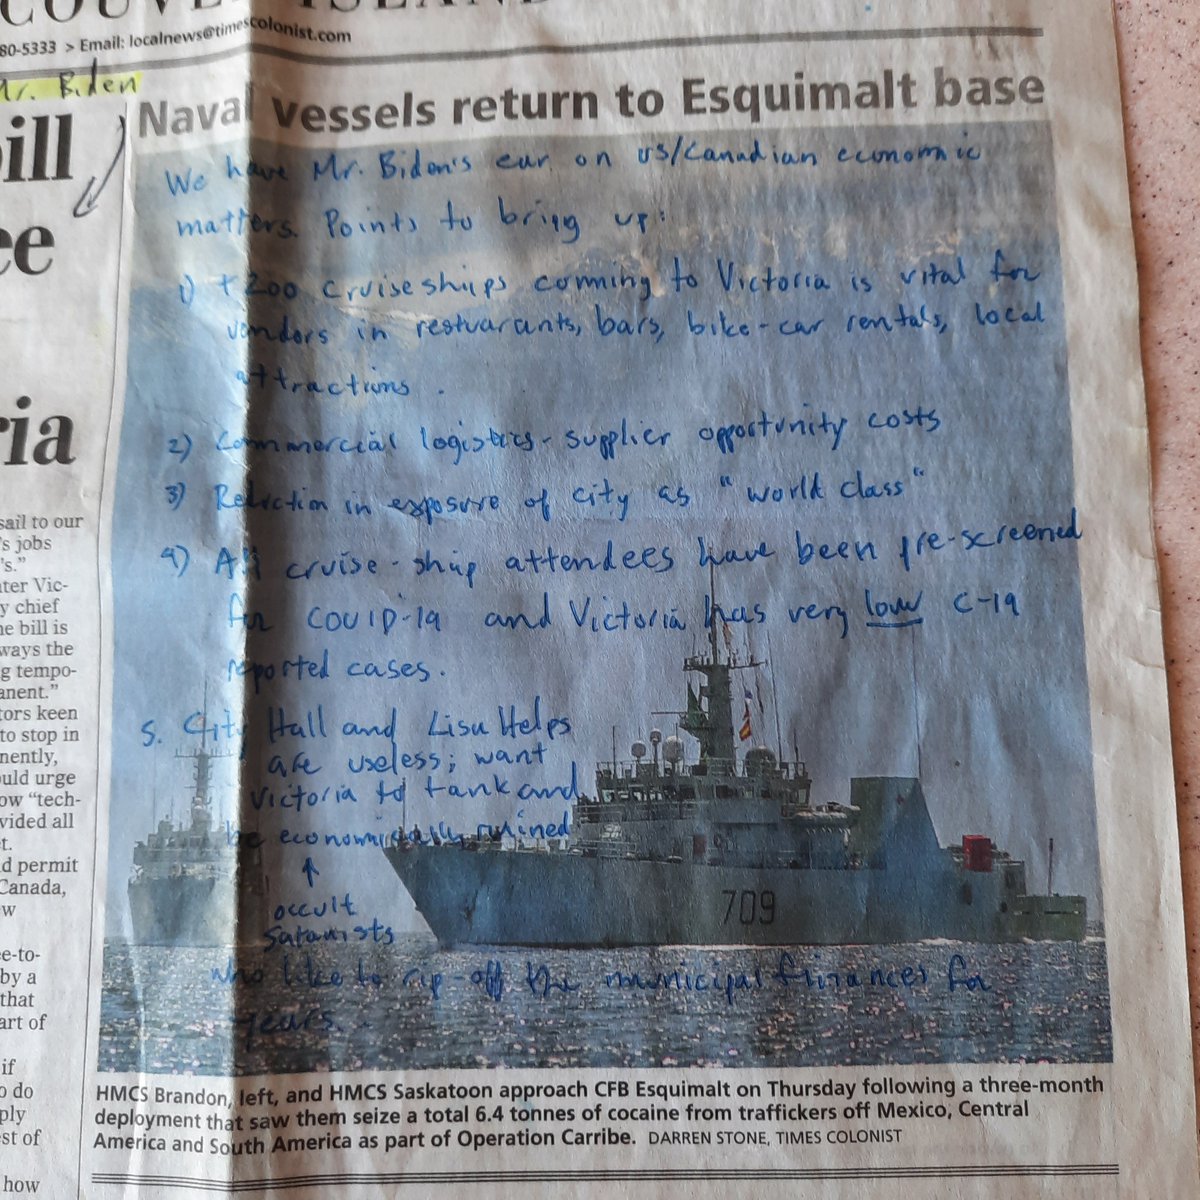 COUVER ISLAND
80-5333 > Email: localnews@timescolonist.com
Mr. Biden
ill
ee
ria
sail to our
's jobs
's."
ter Vic-
y chief
e bill is
ways the
g tempo-
anent."
tors keen
to stop in
nently,
uld urge
ow "tech-
vided all
t.
d permit
Canada,
w
e-to-
by a
that
art of
if
o do
ply
st of
how
Naval vessels return to Esquimalt base
We have Mr. Biden's ear on US/Canadian economic
matters. Points to bring up:
1) +200 cruiseships comming to Victoria is vital for
vendors in restuarants, bars, bike-car rentals, local
attractions.
2) Commercial logistics-supplier opportunity costs
3) in exposure of city as "world class"
4) All cruise-ship attendees have been pre-screened
for COVID-19 and Victoria has very low C-19
reported cases.
5. City Hall and Lisa Helps
are useless; want
Victoria to tank and
be economically ruined
occult
Satanists
who like to rip-off the municipal finances for
years.
709
HMCS Brandon, left, and HMCS Saskatoon approach CFB Esquimalt on Thursday following a three-month
deployment that saw them seize a total 6.4 tonnes of cocaine from traffickers off Mexico, Central
America and South America as part of Operation Carribe. DARREN STONE, TIMES COLONIST